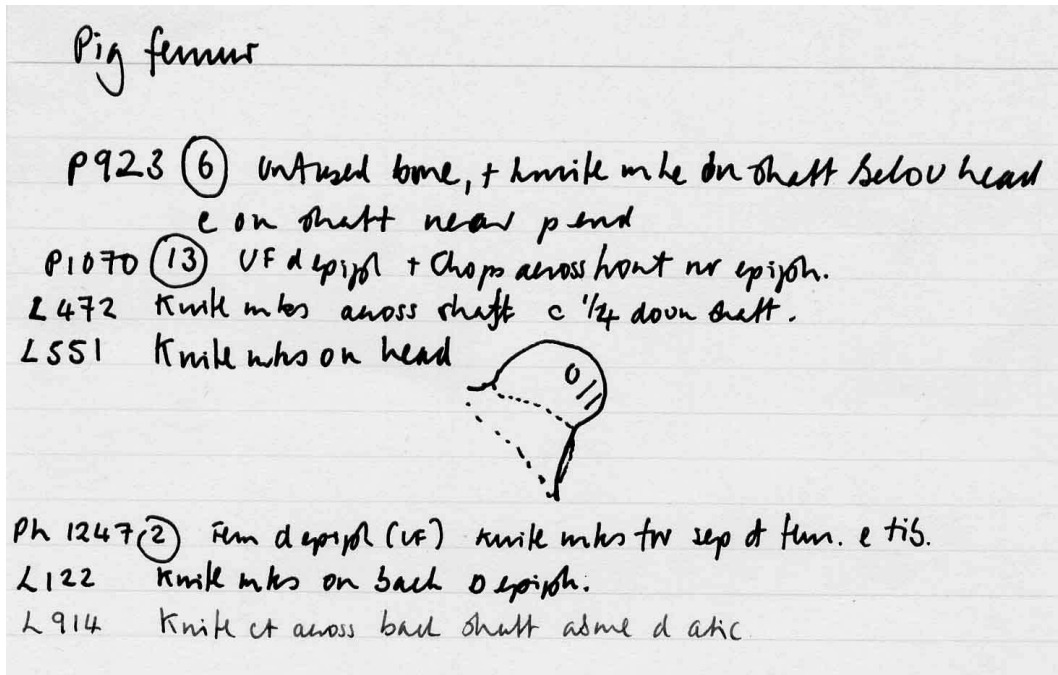 Pig femur
P923 (6) Unfused bone, + knife mks on shaft below head
e on shaft near p end
P1070 (13) UF d epiph + Chops across front nr epiph.
L472 Knife mks across shaft c 1/4 down shaft.
L551 Knife mks on head
Ph 1247 (2) Fem d epiph (UF) knife mks for sep of fem. e tib.
L122 Knife mks on back D epiph.
L914 Knife ct across back shaft above d atic